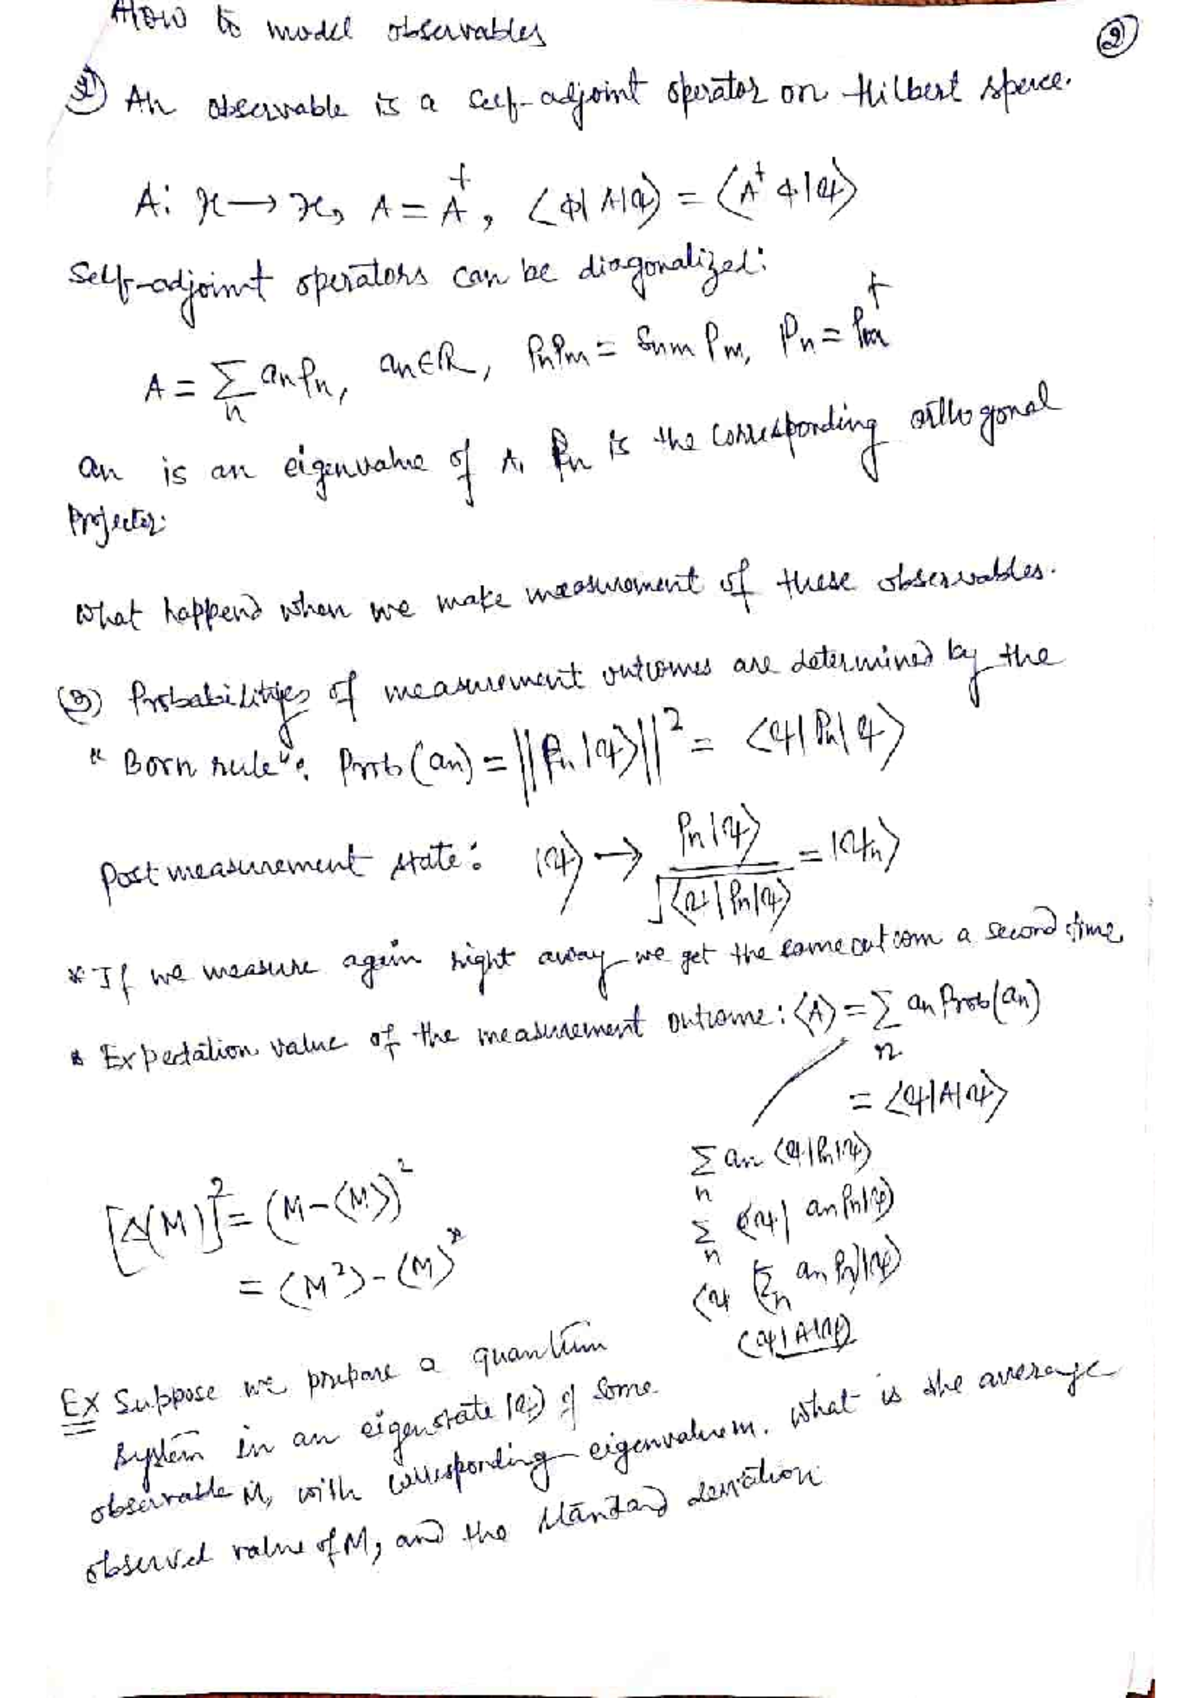 How to model observables
②
2) An observable is a self-adjoint operator on Hilbert space.
A: ℋ → ℋ, A = A†, ⟨Φ|A|ψ⟩ = ⟨A†Φ|ψ⟩
Self-adjoint operators can be diagonalized:
A = Σₙ aₙPₙ, aₙ∈R, PₙPₘ = δₙₘ Pₘ, Pₙ = Pₘ†
aₙ is an eigenvalue of A, Pₙ is the corresponding orthogonal
Projector.
What happend when we make measurement of these observables.
(3) Probabilities of measurement outcomes are determined by the
"Born rule": Prob(aₙ) = ||Pₙ|ψ⟩||² = ⟨ψ|Pₙ|ψ⟩
Post measurement state: |ψ⟩ → Pₙ|ψ⟩ / √⟨ψ|Pₙ|ψ⟩ = |ψₙ⟩
* If we measure again right away we get the same outcom a second time
* Expectation value of the measurement outcome: ⟨A⟩ = Σₙ aₙ Prob(aₙ)
= ⟨ψ|A|ψ⟩
Σₙ aₙ ⟨ψ|Pₙ|ψ⟩
Σₙ ⟨ψ| aₙPₙ|ψ⟩
⟨ψ (Σₙ aₙPₙ)|ψ⟩
⟨ψ|A|ψ⟩
[Δ(M)]² = (M-⟨M⟩)²
= ⟨M²⟩-⟨M⟩²
Ex Suppose we prepare a quantum
System in an eigenstate |ψ⟩ of some
observable M, with corresponding eigenvalue m. What is the average
observed value of M, and the standard deviation